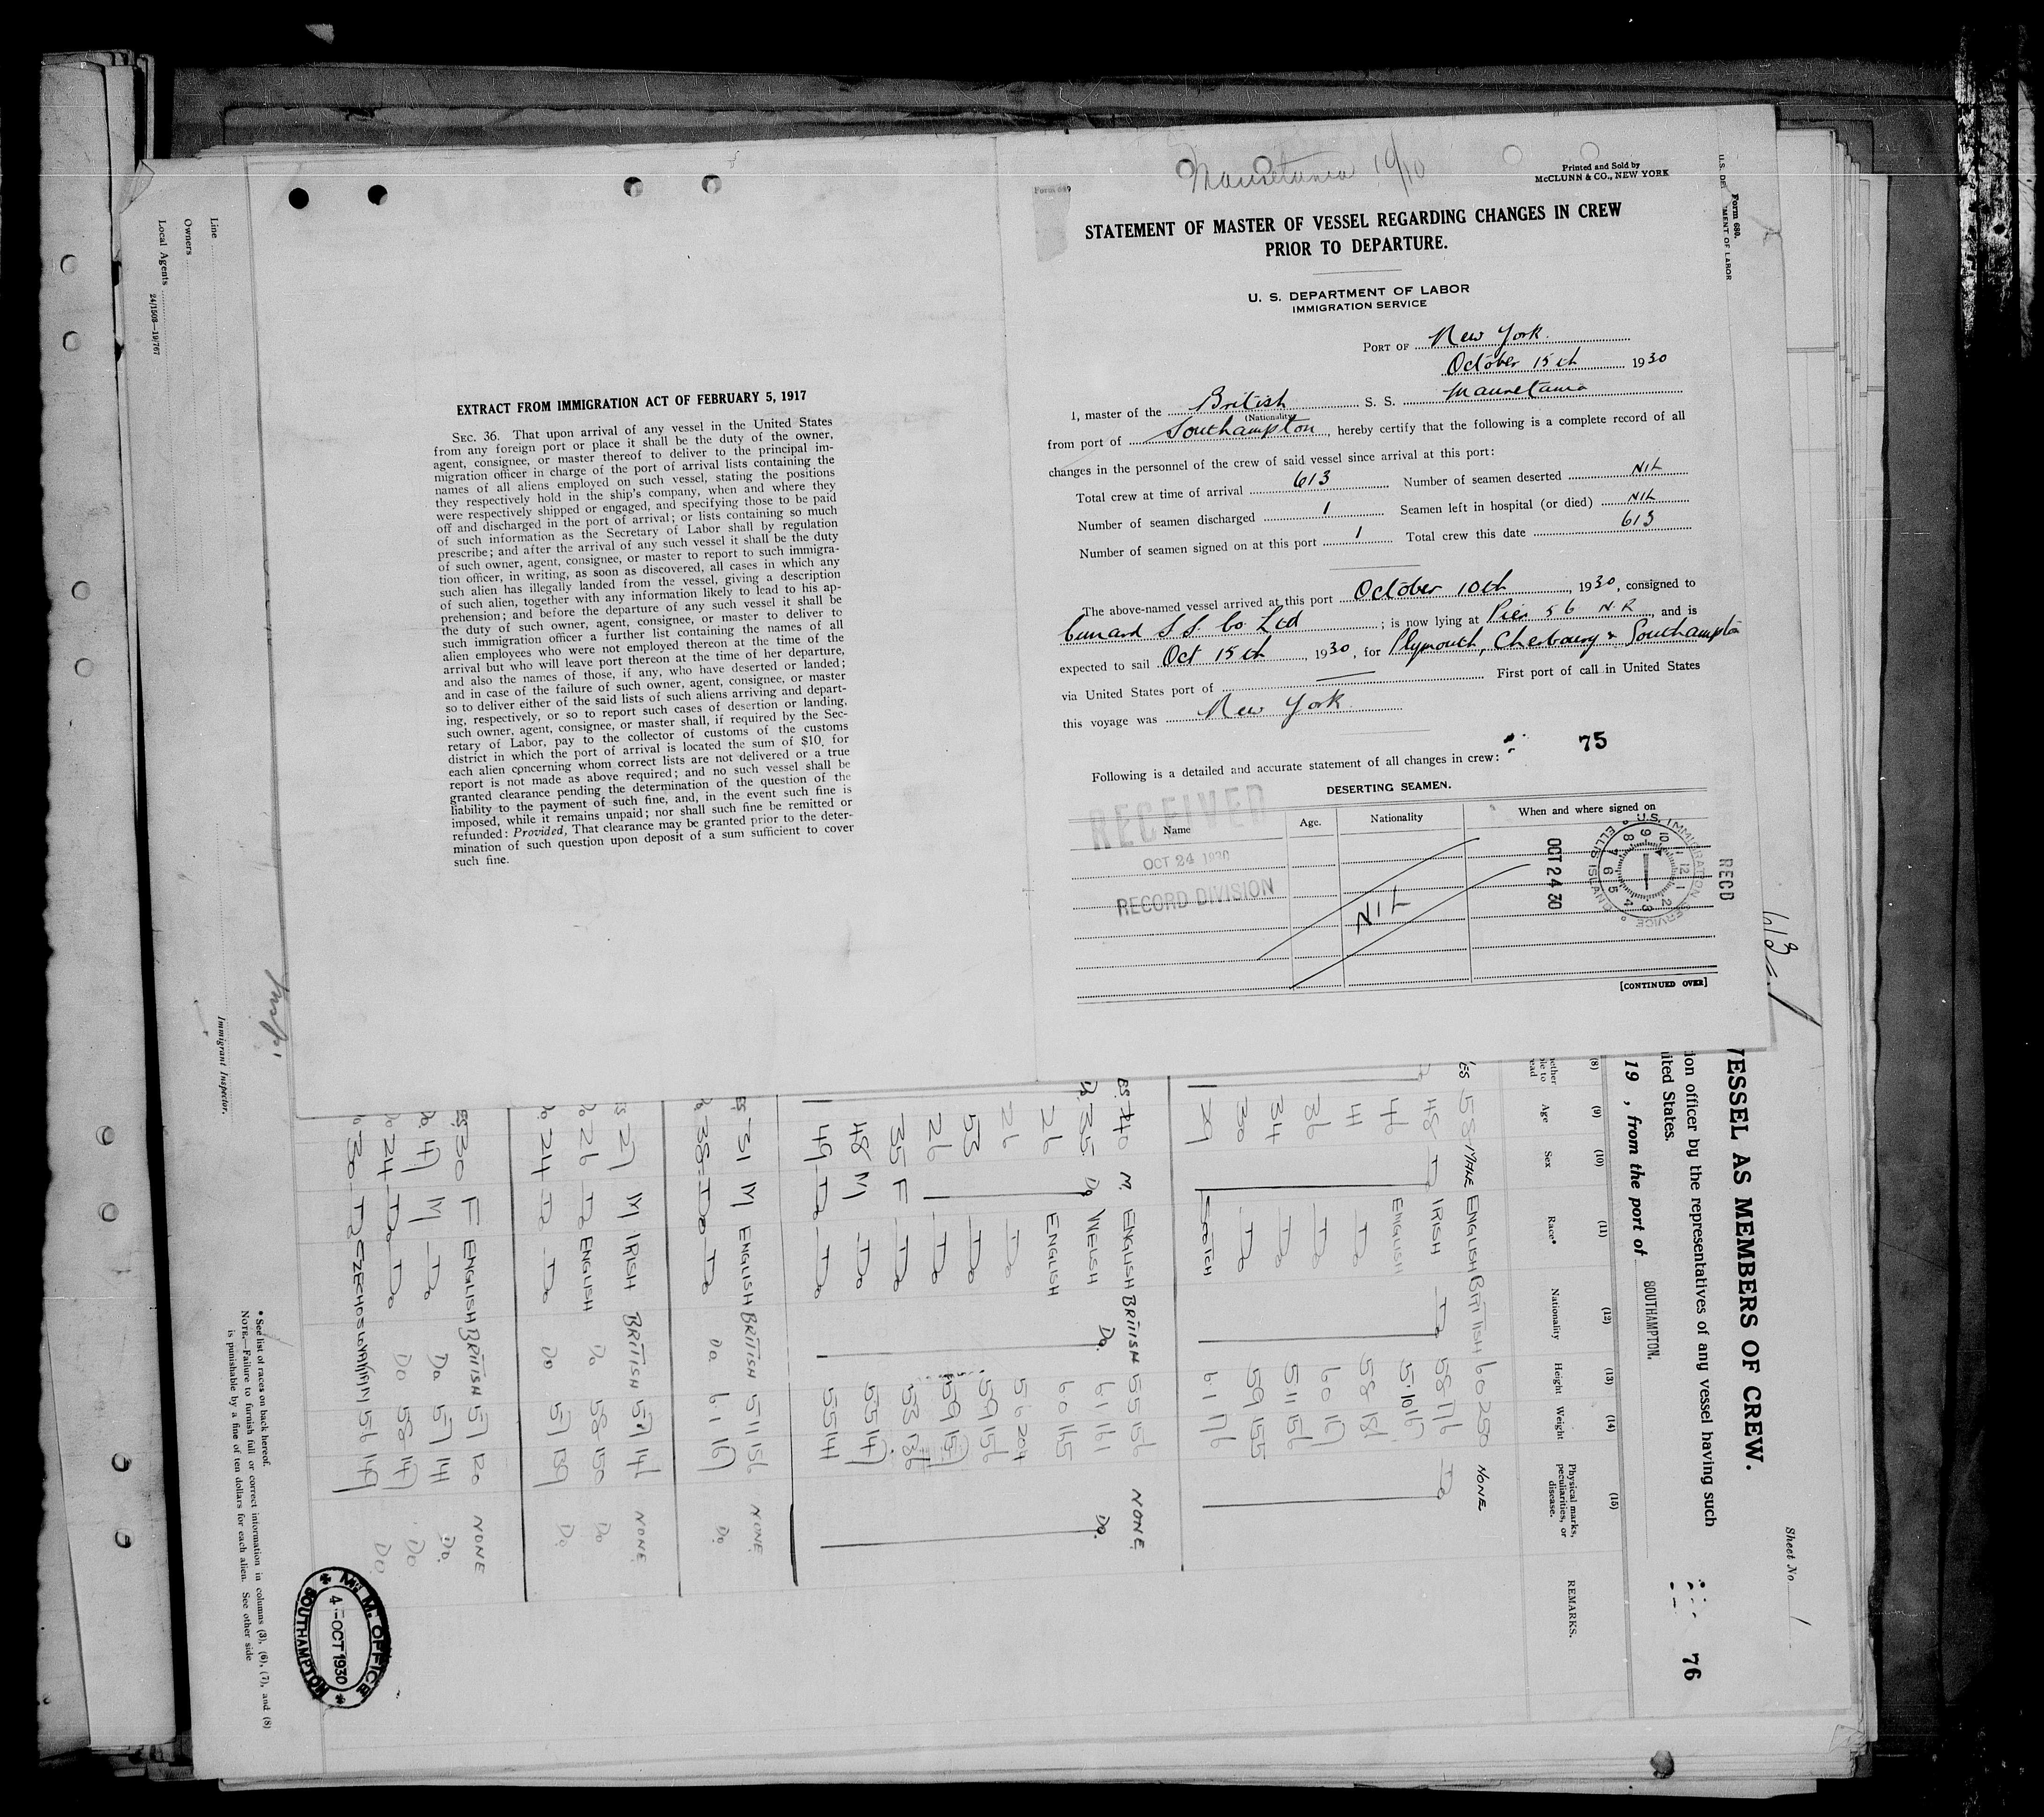 Mauretania 10/10
Printed and Sold by
McCLUNN & CO., NEW YORK
STATEMENT OF MASTER OF VESSEL REGARDING CHANGES IN CREW
PRIOR TO DEPARTURE.
U. S. DEPARTMENT OF LABOR
IMMIGRATION SERVICE
PORT OF New York
October 15th 1930
I, master of the British S. S. Mauretania
(Nationality)
from port of Southampton, hereby certify that the following is a complete record of all
changes in the personnel of the crew of said vessel since arrival at this port:
Total crew at time of arrival 613 Number of seamen deserted NIL
Number of seamen discharged 1 Seamen left in hospital (or died) NIL
Number of seamen signed on at this port 1 Total crew this date 613
The above-named vessel arrived at this port October 10th, 1930, consigned to
Cunard S S Co Ltd; is now lying at Pier 56 N.R, and is
expected to sail Oct 15th, 1930, for Plymouth, Cherbourg & Southampton
via United States port of First port of call in United States
this voyage was New York
75
Following is a detailed and accurate statement of all changes in crew:
DESERTING SEAMEN.
Name Age. Nationality When and where signed on
NIL
[CONTINUED OVER]
RECEIVED
OCT 24 1930
RECORD DIVISION
RECD
OCT 24 30
U.S. IMMIGRATION SERVICE
ELLIS ISLAND
Form 680.
EXTRACT FROM IMMIGRATION ACT OF FEBRUARY 5, 1917
SEC. 36. That upon arrival of any vessel in the United States
from any foreign port or place it shall be the duty of the owner,
agent, consignee, or master thereof to deliver to the principal im-
migration officer in charge of the port of arrival lists containing the
names of all aliens employed on such vessel, stating the positions
they respectively hold in the ship's company, when and where they
were respectively shipped or engaged, and specifying those to be paid
off and discharged in the port of arrival; or lists containing so much
of such information as the Secretary of Labor shall by regulation
prescribe; and after the arrival of any such vessel it shall be the duty
of such owner, agent, consignee, or master to report to such immigra-
tion officer, in writing, as soon as discovered, all cases in which any
such alien has illegally landed from the vessel, giving a description
of such alien, together with any information likely to lead to his ap-
prehension; and before the departure of any such vessel it shall be
the duty of such owner, agent, consignee, or master to deliver to
such immigration officer a further list containing the names of all
alien employees who were not employed thereon at the time of the
arrival but who will leave port thereon at the time of her departure,
and also the names of those, if any, who have deserted or landed;
and in case of the failure of such owner, agent, consignee, or master
so to deliver either of the said lists of such aliens arriving and depart-
ing, respectively, or so to report such cases of desertion or landing,
such owner, agent, consignee, or master shall, if required by the Sec-
retary of Labor, pay to the collector of customs of the customs
district in which the port of arrival is located the sum of $10 for
each alien concerning whom correct lists are not delivered or a true
report is not made as above required; and no such vessel shall be
granted clearance pending the determination of the question of the
liability to the payment of such fine, and, in the event such fine is
imposed, while it remains unpaid; nor shall such fine be remitted or
refunded: Provided, That clearance may be granted prior to the deter-
mination of such question upon deposit of a sum sufficient to cover
such fine.
Sheet No 1
VESSEL AS MEMBERS OF CREW.
tion officer by the representatives of any vessel having such
ited States.
76
19 , from the port of SOUTHAMPTON.
(8) (9) (10) (11) (12) (13) (14) (15)
Age Sex Race* Nationality Height Weight Physical marks, peculiarities, or disease. REMARKS.
58 MALE ENGLISH BRITISH 6 0 250 NONE
48 Do IRISH Do 5 8 176 Do
46 ENGLISH 5.10
41 Do 5 8 181
36 Do 6 0
34 Do 5 11 156
30 Do 5 9 155
29 SCOTCH 6 1 176
40 M. ENGLISH BRITISH 5 5 156 NONE
35 Do WELSH Do. 6 1 161 Do.
26 ENGLISH 6 0 165
26 Do 5 6 204
53 Do 5 9 156
26 Do 5 9
35 F Do 5 3
48 M Do 5 5 147
49 Do Do 5 5 141
31 M ENGLISH BRITISH 5 11 156 NONE
38 Do Do Do. 6 1 167 Do.
27 M IRISH BRITISH 5 7 146 NONE
26 Do ENGLISH Do 5 8 150 Do
24 Do Do Do 5 7 139 Do
30 F ENGLISH BRITISH 5 7 120 NONE
47 M Do Do 5 7 141 Do.
24 Do Do Do 5 8 147 Do
30 Do CZECHOSLOVAKIAN 5 6 149 Do
H. M. OFFICE
4 - OCT 1930
SOUTHAMPTON
* See list of races on back hereof.
NOTE.—Failure to furnish full or correct information in columns (3), (6), (7), and (8)
is punishable by a fine of ten dollars for each alien. See other side
Line
Owners
Local Agents
24/1508—19/767
Immigrant Inspector.